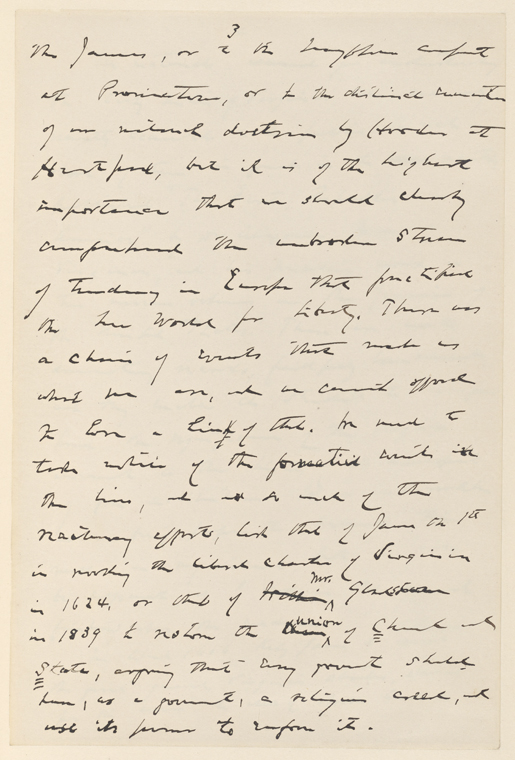 3
the James, or to the Mayflower compact
at Provincetown, or to the distinct enunciation
of our natural doctrine by Hooker at
Hartford, but it is of the highest
importance that we should clearly
comprehend the unbroken stream
of tendency in Europe that fructified
the New World for liberty. There was
a chain of events that made us
what we are, and we cannot afford
to lose a link of that. We need to
take notice of the formative events in
the line, and not so much of the
reactionary efforts, like that of James the 1st
in revoking the liberal charter of Virginia
in 1624, or that of Mr. Gladstone
in 1839 to restore the union of Church and
State, arguing that every government should
have, as a government, a religious creed, and
use its power to enforce it.